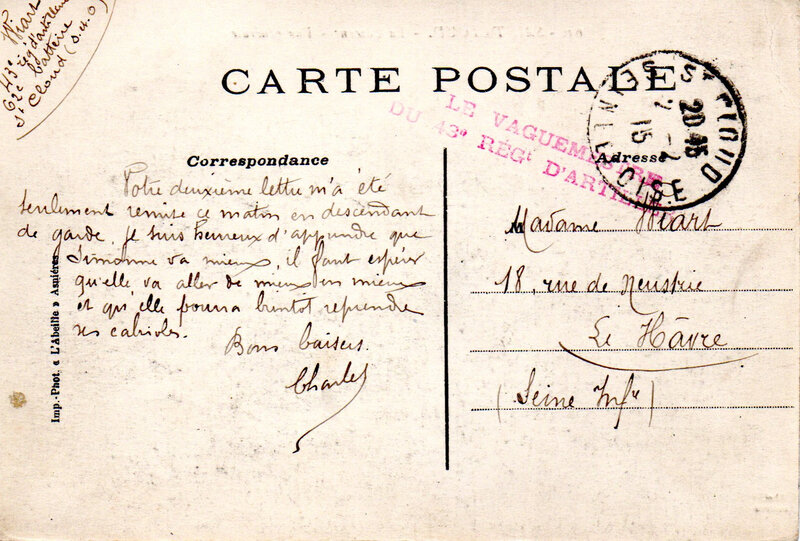 Wiart
43e rég d'artillerie
62e batterie
St Cloud (S.&O)
CARTE POSTALE
LE VAGUEMESTRE
DU 43e RÉGt D'ARTIE
ST CLOUD
20.45
7-2
15
SEINE ET OISE
Correspondance
Adresse
Votre deuxième lettre m'a été
seulement remise ce matin en descendant
de garde. Je suis heureux d'apprendre que
Simonne va mieux, il faut espérer
qu'elle va aller de mieux en mieux
et qu'elle pourra bientot reprendre
ses cabrioles.
Bons baisers.
Charles
Madame Wiart
18, rue de Neustrie
Le Hâvre
(Seine Infre)
Imp.-Phot. « L'Abeille » Asnières